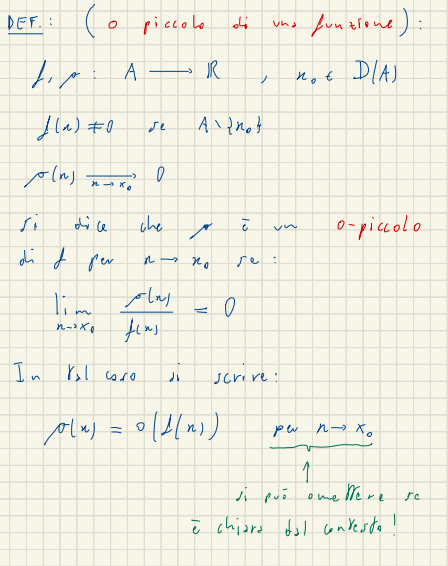 DEF.: (o piccolo di una funzione):
f, ρ : A → ℝ , x₀ ∈ D(A)
f(x) ≠ 0 se A \ {x₀}
ρ(x) →ₓ→ₓ₀ 0
si dice che ρ è un o-piccolo
di f per x → x₀ se:
lim x→x₀ ρ(x)/f(x) = 0
In tal caso si scrive:
ρ(x) = o(f(x)) per x → x₀
si può omettere se
è chiaro dal contesto!